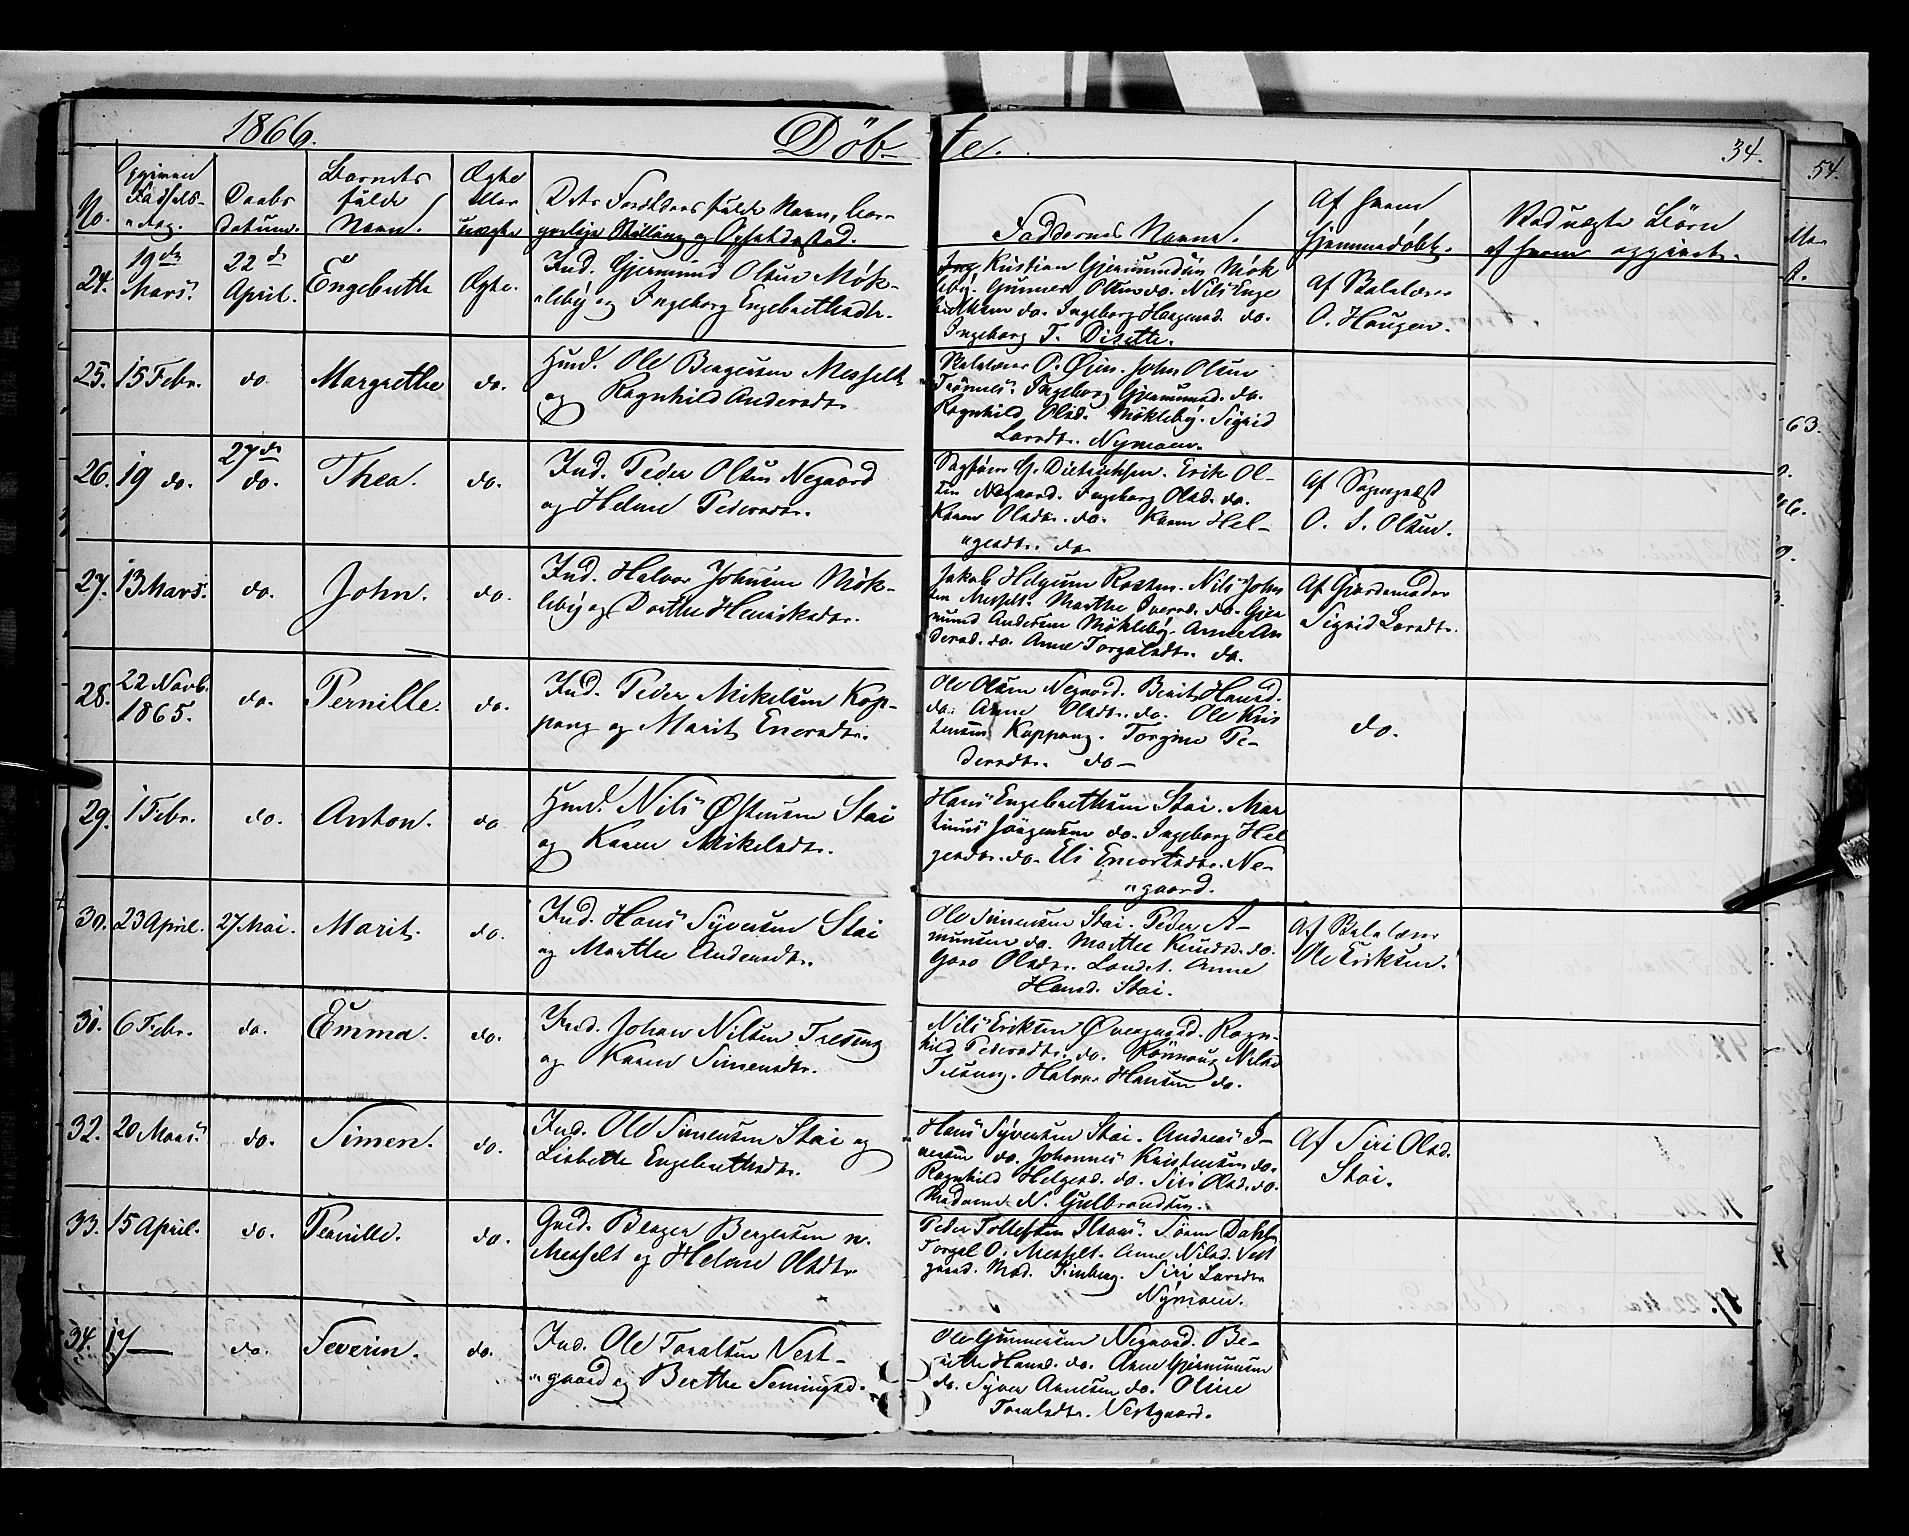 1866. Döb- te. 34.
No.
Opgiven Fødsels- dag.
Daabs Datum.
Barnets fulde Navn.
Ægte eller uægte
Dets Forældres fulde Navn, Bor-
gerlige Stilling og Opholdssted.
Faddernes Navne.
Af hvem hjemmedøbt.
Ved uægte Börn af hvem opgivet.
24. 19de Mars. 22de April. Engebrethe Ægte.
Ind. Gjermund Olsen Mök-
leby og Ingeborg Engebrethsdtr.
Kristian Gjermundsen Mök
leby. Gunner Olsen do. Nils Enge
brethsen do. Ingeborg Haagensd. do.
Ingeborg T. Disette.
Af Skolelærer
O. Haugen.
25. 15 Febr. do. Margrethe do.
Husd. Ole Bergersen Messelt
og Ragnhild Andersdtr.
Skolelærer P. Öien. John Olsen
Trönnes. Ingeborg Gjermunsd. do.
Ragnhild Olsd. Mökleby. Sigrid
Larsdtr. Nymoen.
26. 19 do. 27de do. Thea. do.
Ind. Peder Olsen Negaard
og Helene Pedersdtr.
G. Dietrichsen. Erik Ol-
sen Negaard. Ingeborg Olsd. do.
Karen Olsdtr. do. Karen Hel-
"gesdtr. do
Af
O. S. Olsen.
27. 13 Mars. do. John. do.
Ind. Halvor Johnsen Mök-
leby og Dorthe Henriksdtr.
Jakob Helgesen Rasten. Nils John
sen Messelt. Marthe Iversd. do. Gjer
mund Andersen Mökleby. Anne An
dersd. do. Anne Torgalsdtr. do.
Af Gjordemoder
Sigrid Larsdtr.
28. 22 Novb. 1865. do. Pernille. do.
Ind. Peder Mikelsen Kop-
pang og Marit Enersdtr.
Ole Olsen Negaard. Berit Hansd.
do. Anne Olsdtr. do. Ole Kris
tensen Koppang. Torgine Pe-
dersdtr. do-
do.
29. 1 Febr. do. Anton. do
Husd. Nils Östensen Stai
og Karen Mikelsdtr.
Hans Engebrethsen Stai. Mar
tinus Jörgensen do. Ingeborg Hel
gesdtr. do. Eli Enersdtr. Ne-
"gaard.
30. 23 April. 27 Mai. Marit. do.
Ind. Hans Syversen Stai
og Marthe Andersdtr.
Ole Simensen Stai. Peder A-
munsen do. Marthe Knudsd. do.
Goro Olsdtr. Landet. Anne
Hansd. Stai.
Af Skolelærer
Ole Eriksen.
31. 6 Febr. do. Emma. do.
Ind. Johan Nilsen Treseng
og Karen Simensdtr.
Nils Eriksen Övergaard. Ragn-
hild Pedersdtr. do. Rönnaug Nilsd.
Treseng. Halvor Hansen do.
32. 20 Mars. do. Simen. do.
Ind. Ole Simensen Stai og
Lisbethe Engebrethsdtr.
Hans Syversen Stai. Andreas I-
versen do. Johannes Kristensen do.
Ragnhild Helgesd. do. Siri Olsd. do.
N. Gulbrandsen.
Af Siri Olsd.
Stai.
33. 15 April. do. Pernille. do.
Grd. Berger Bergersen n.
Messelt og Helene Olsdtr
Peder Tollefsen Sören Dahl
Torgel O. Messelt. Anne Nilsd. Vest
gaard. Mad. Simberg. Siri Larsdtr
Nymoen.
34. 17— do. Severin. do.
Ind. Ole Toralsen Vest-
"gaard og Berthe Semingsd.
Ole Gunnersen Negaard. Be-
rithe Hansd. do. Anne Gjermunsen
do. Syver Arnesen do. Oline
Toralsdtr. Vestgaard.
54.